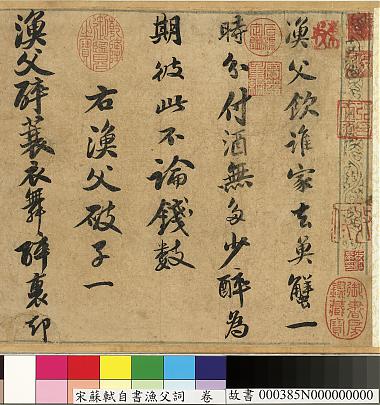 漁父飲誰家去魚蟹一
時分付酒無多少醉為
期彼此不論錢數
右漁父破子一
漁父醉蓑衣舞醉裏却
御書房鑑藏寶
宋蘇軾自書漁父詞 卷 故書 000385N000000000